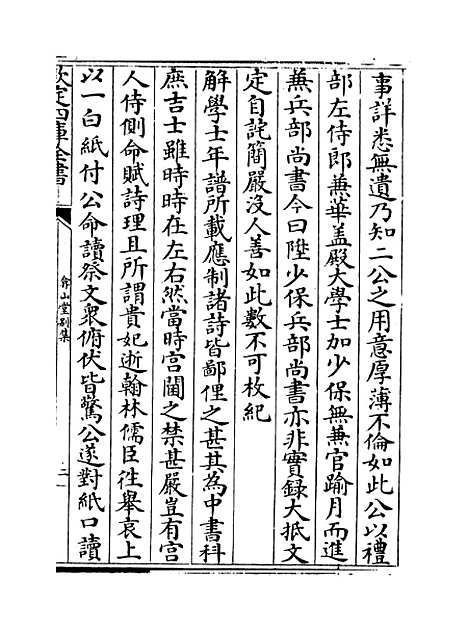 事詳悉無遺乃知二公之用意厚薄不倫如此公以禮
部左侍郎兼華盖殿大學士加少保無兼官踰月而進
兼兵部尚書今曰陞少保兵部尚書亦非實録大抵文
定自詫簡嚴没人善如此數不可枚紀
解學士年譜所載應制諸詩皆鄙俚之甚其為中書科
庶吉士雖時時在左右然當時宫闈之禁甚嚴豈有宫
人侍側命賦詩理且所謂貴妃逝翰林儒臣徃舉哀上
以一白紙付公命讀祭文衆俯伏皆驚公遂對紙口讀
欽定四庫全書
弇山堂别集